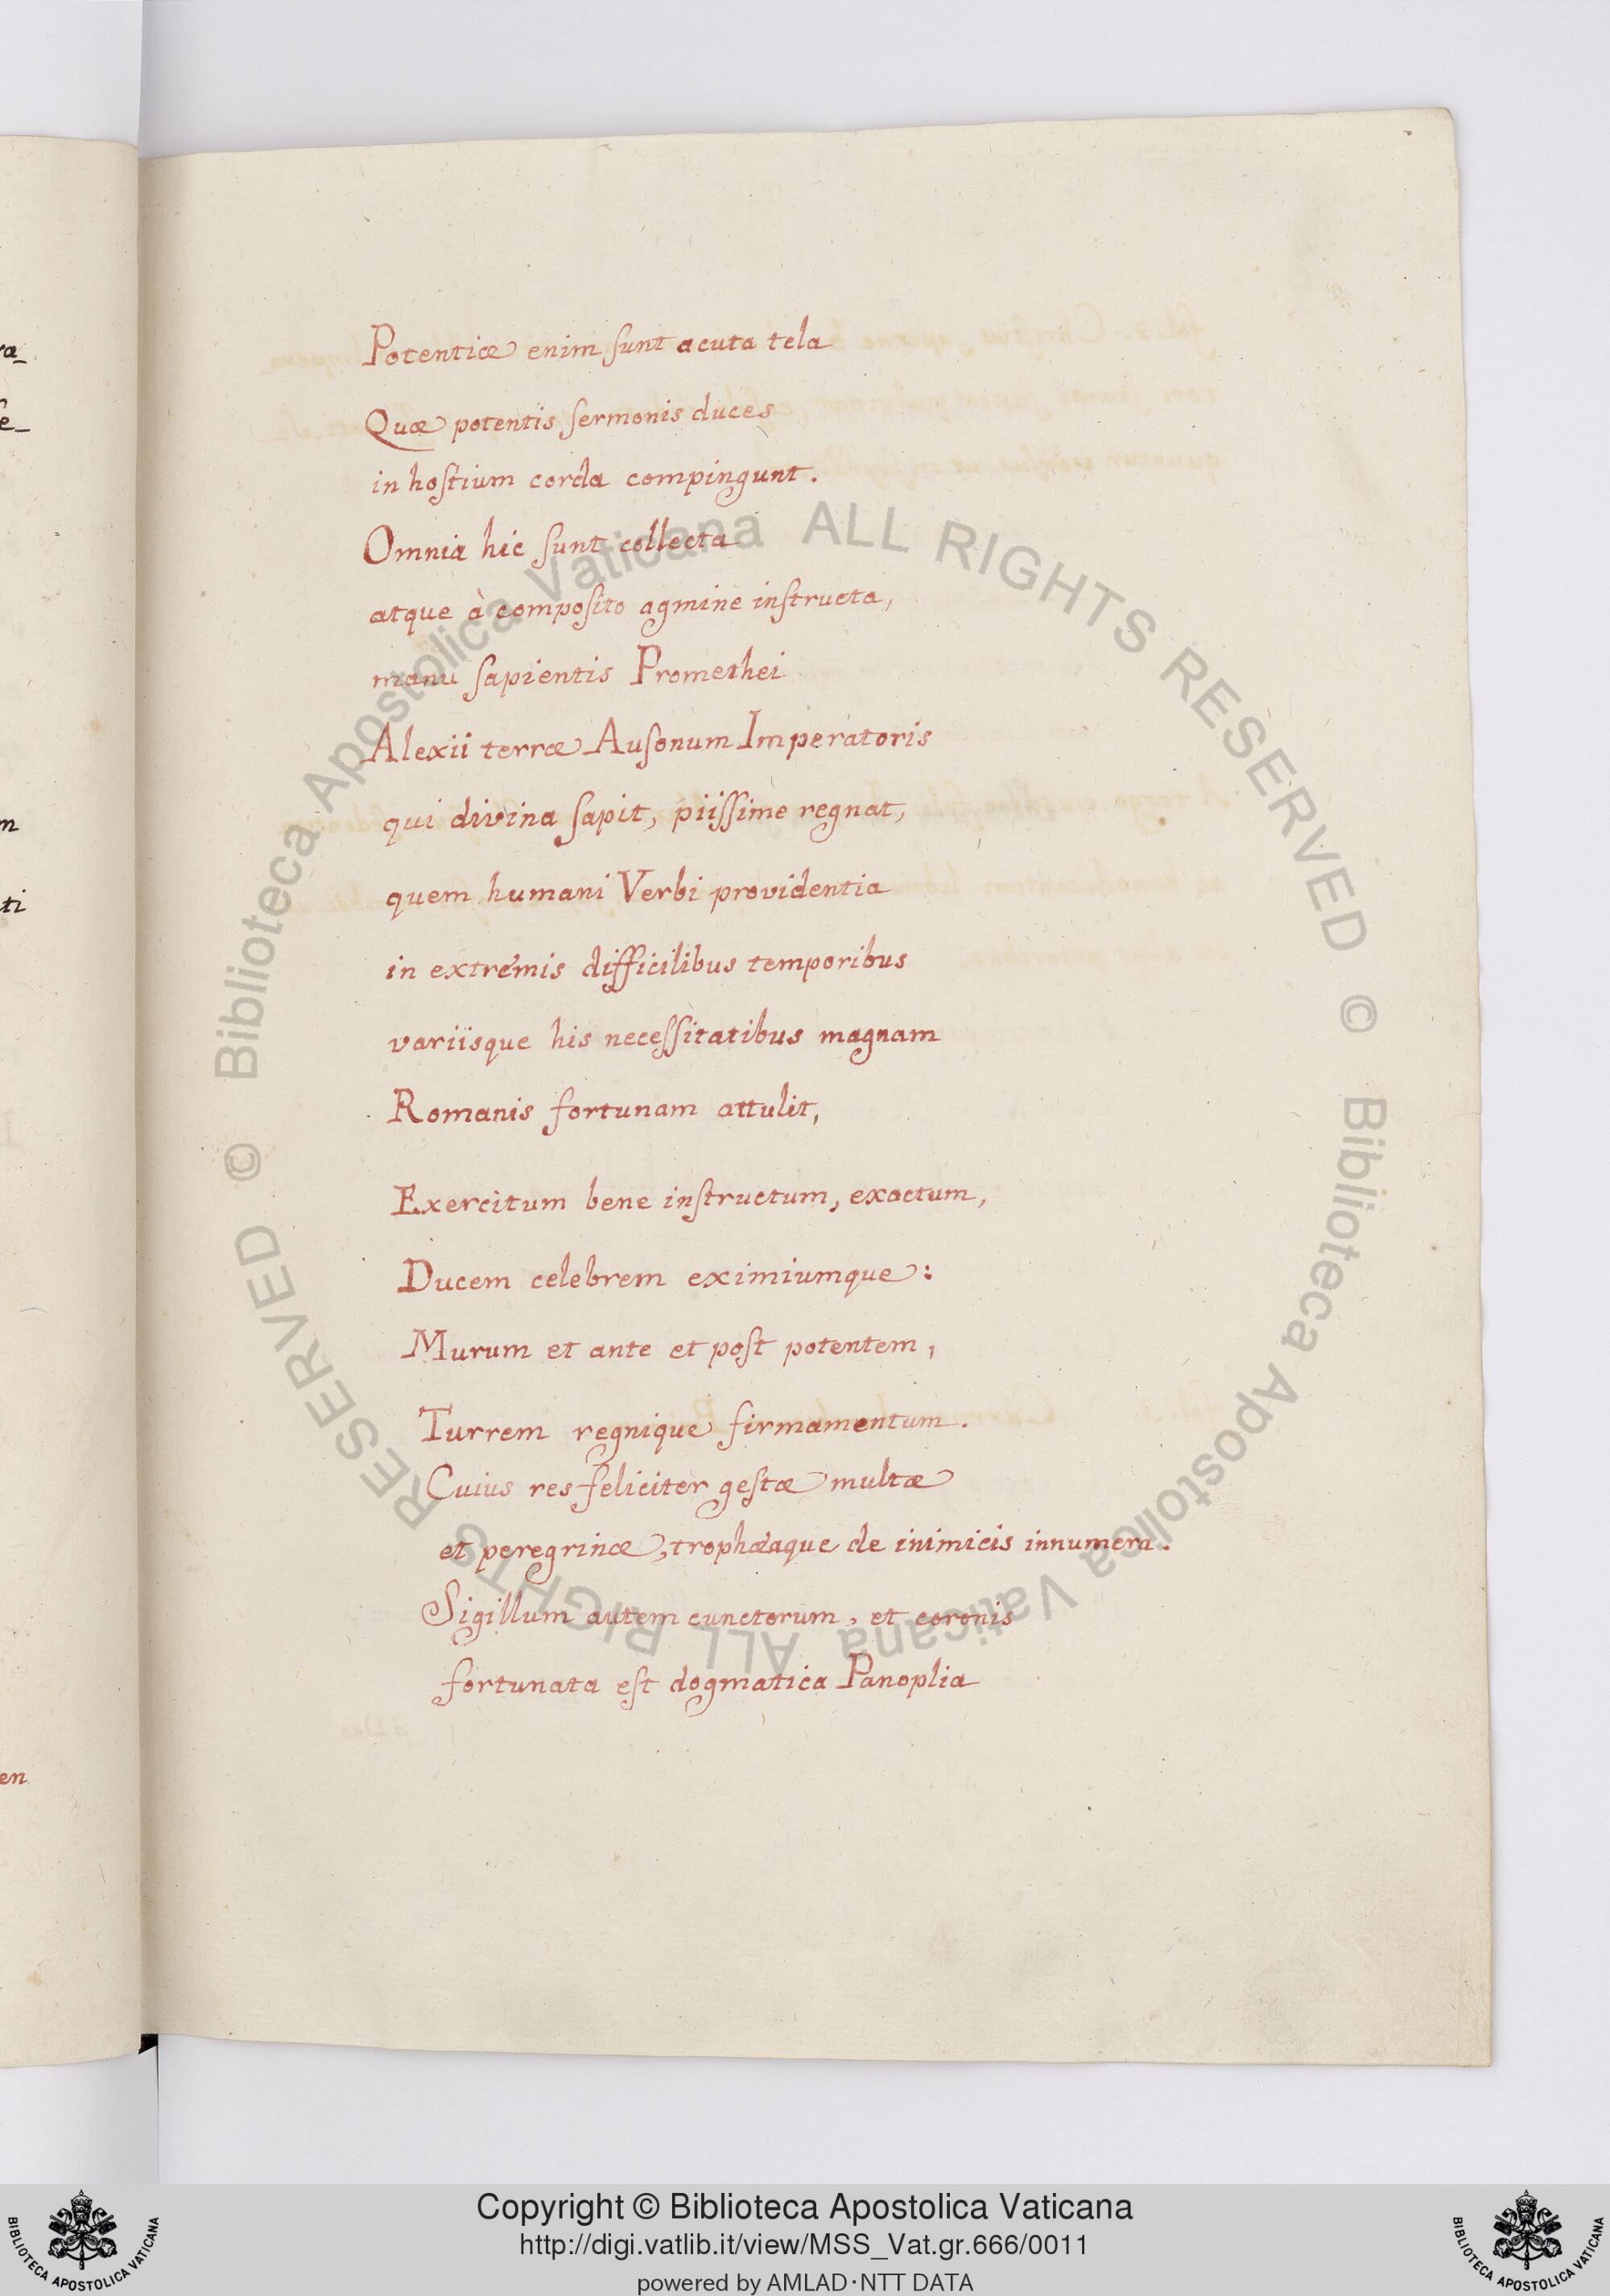 Potentiæ enim sunt acuta tela
Quæ potentis sermonis duces
in hostium corda compingunt.
Omnia hic sunt collecta
atque à composito agmine instructa,
manu sapientis Promethei
Alexii terræ Ausonum Imperatoris
qui divina sapit, piissime regnat,
quem humani Verbi providentia
in extremis difficilibus temporibus
variisque his necessitatibus magnam
Romanis fortunam attulit,
Exercitum bene instructum, exactum,
Ducem celebrem eximiumque:
Murum et ante et post potentem,
Turrem regnique firmamentum.
Cuius res feliciter gestæ multæ
et peregrinæ, trophæaque de inimicis innumera.
Sigillum autem cunctorum, et coronis
fortunata est dogmatica Panoplia
© Biblioteca Apostolica Vaticana ALL RIGHTS RESERVED © Biblioteca Apostolica Vaticana ALL RIGHTS RESERVED
Copyright © Biblioteca Apostolica Vaticana
http://digi.vatlib.it/view/MSS_Vat.gr.666/0011
powered by AMLAD·NTT DATA
BIBLIOTECA APOSTOLICA VATICANA
BIBLIOTECA APOSTOLICA VATICANA